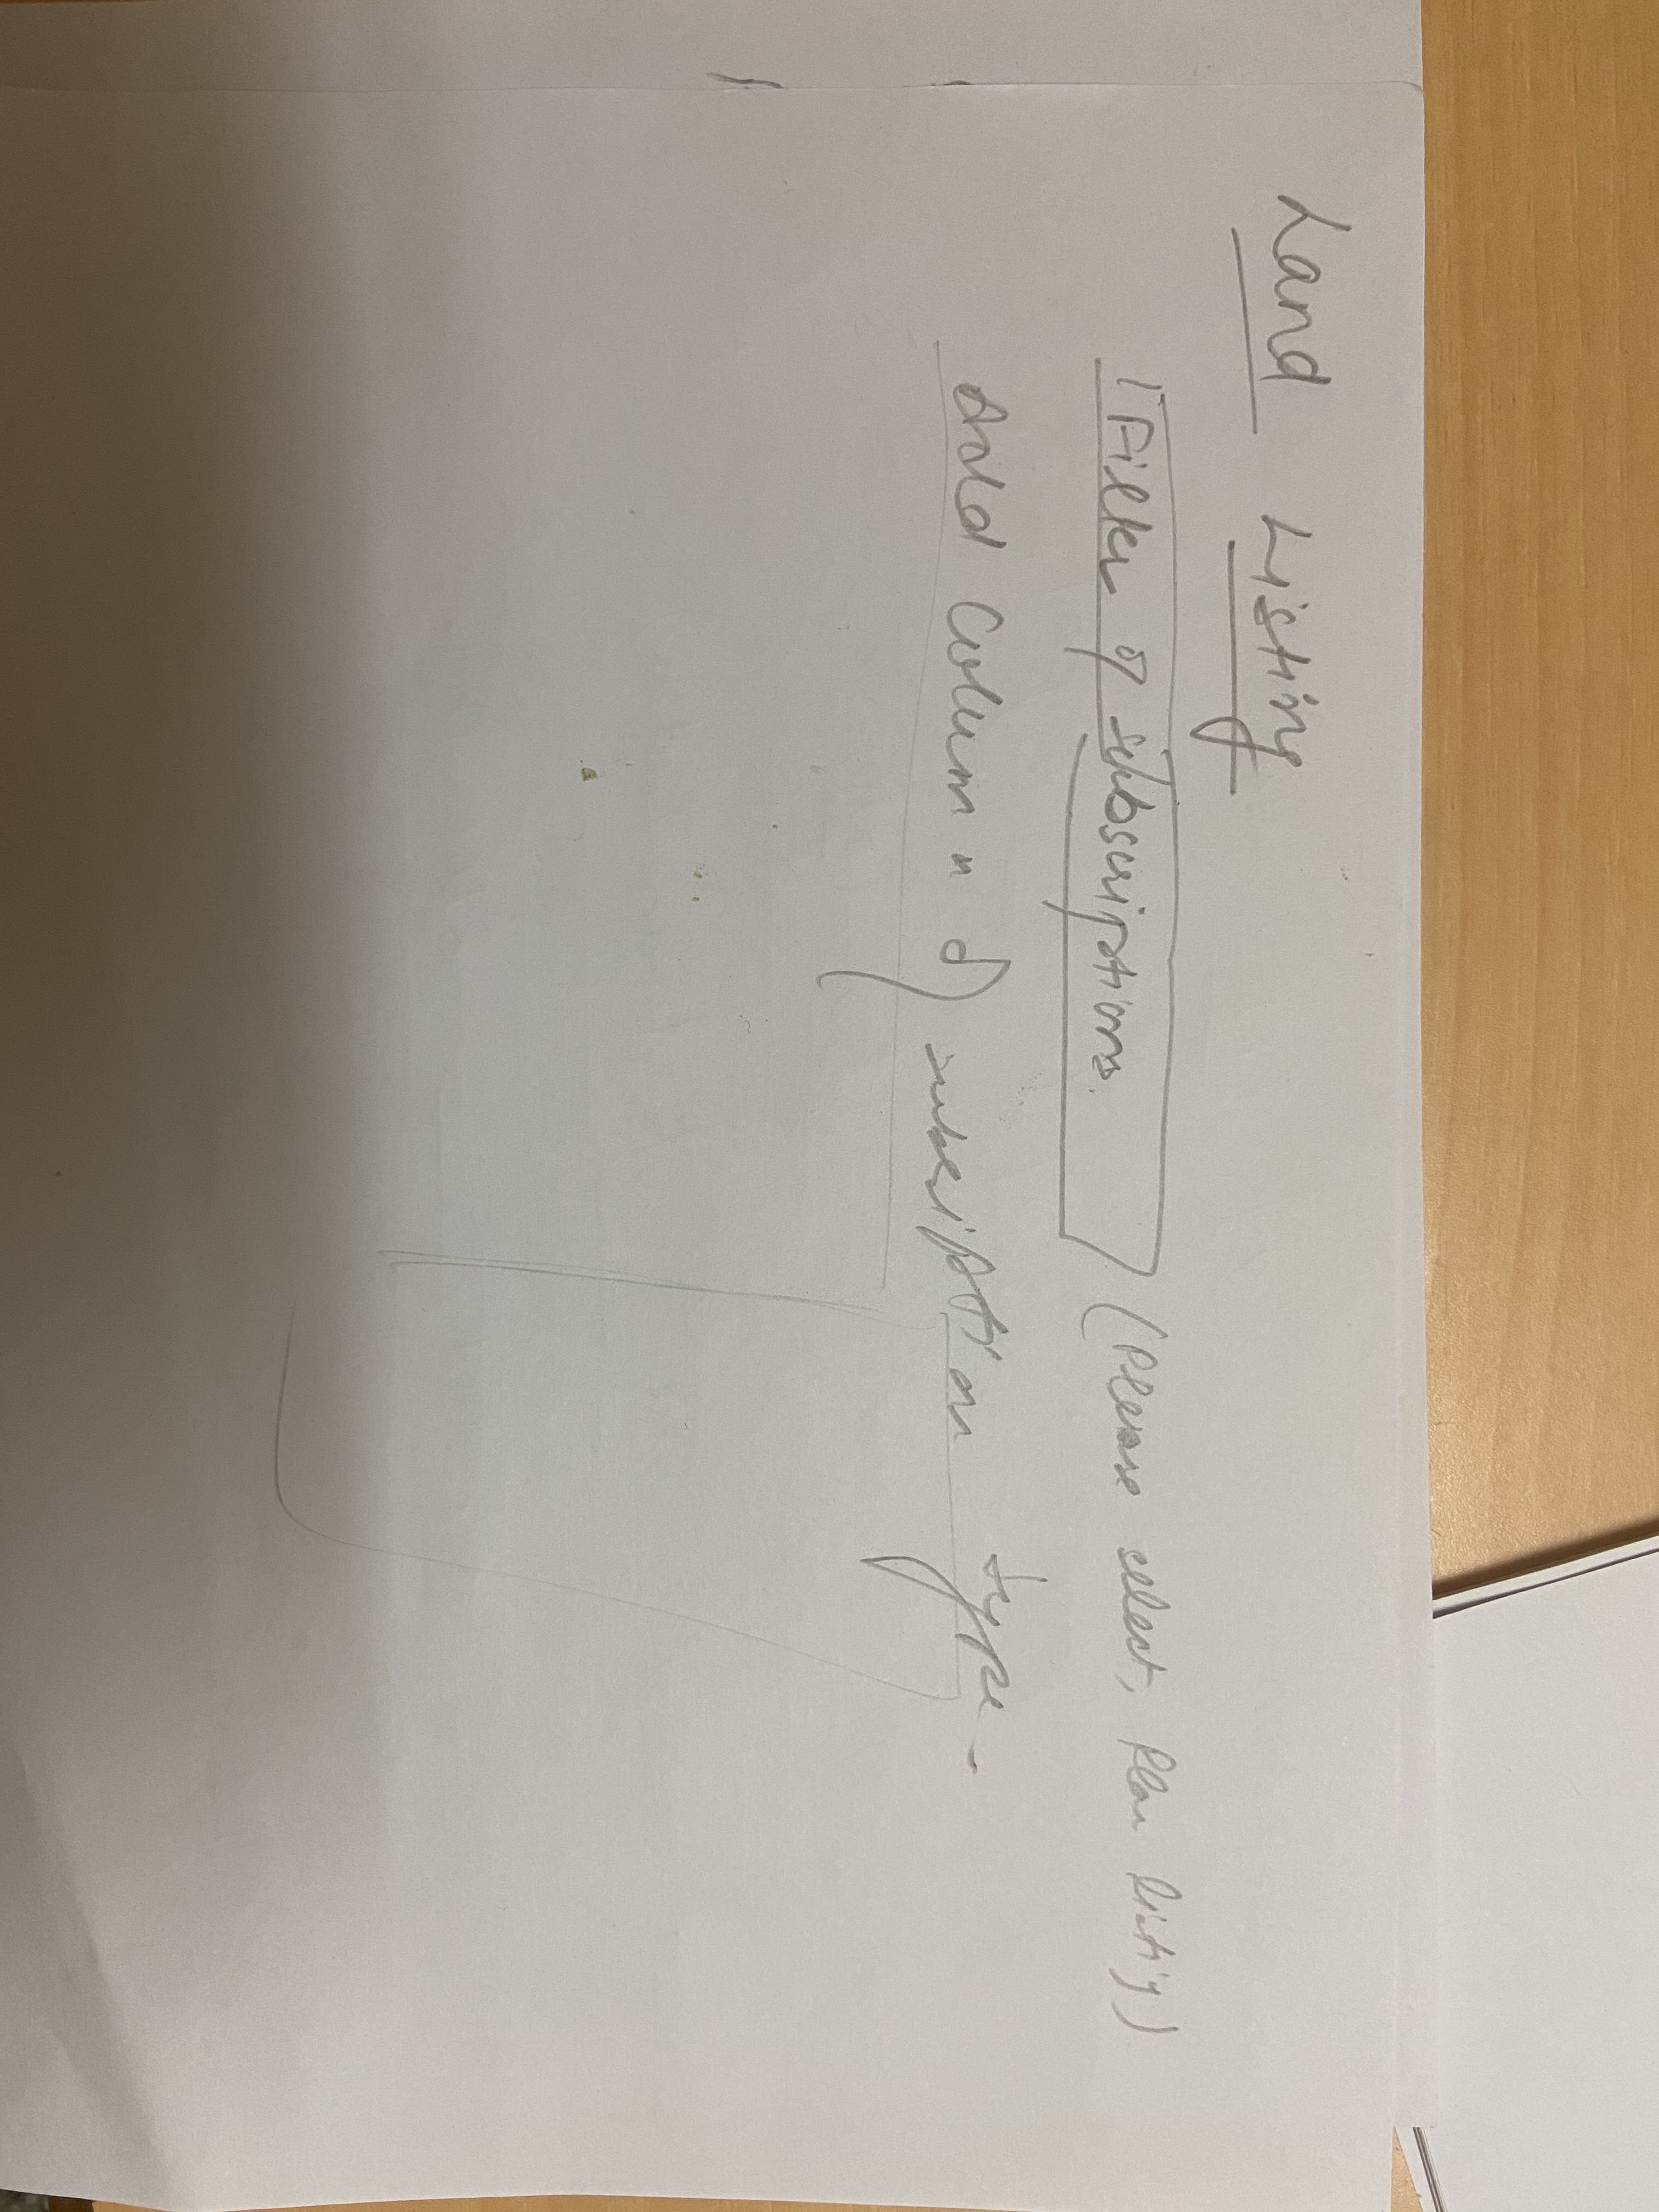 Land Listing
Filter of subscriptions. (Please select, Plan listing)
Add Column of subscription type -